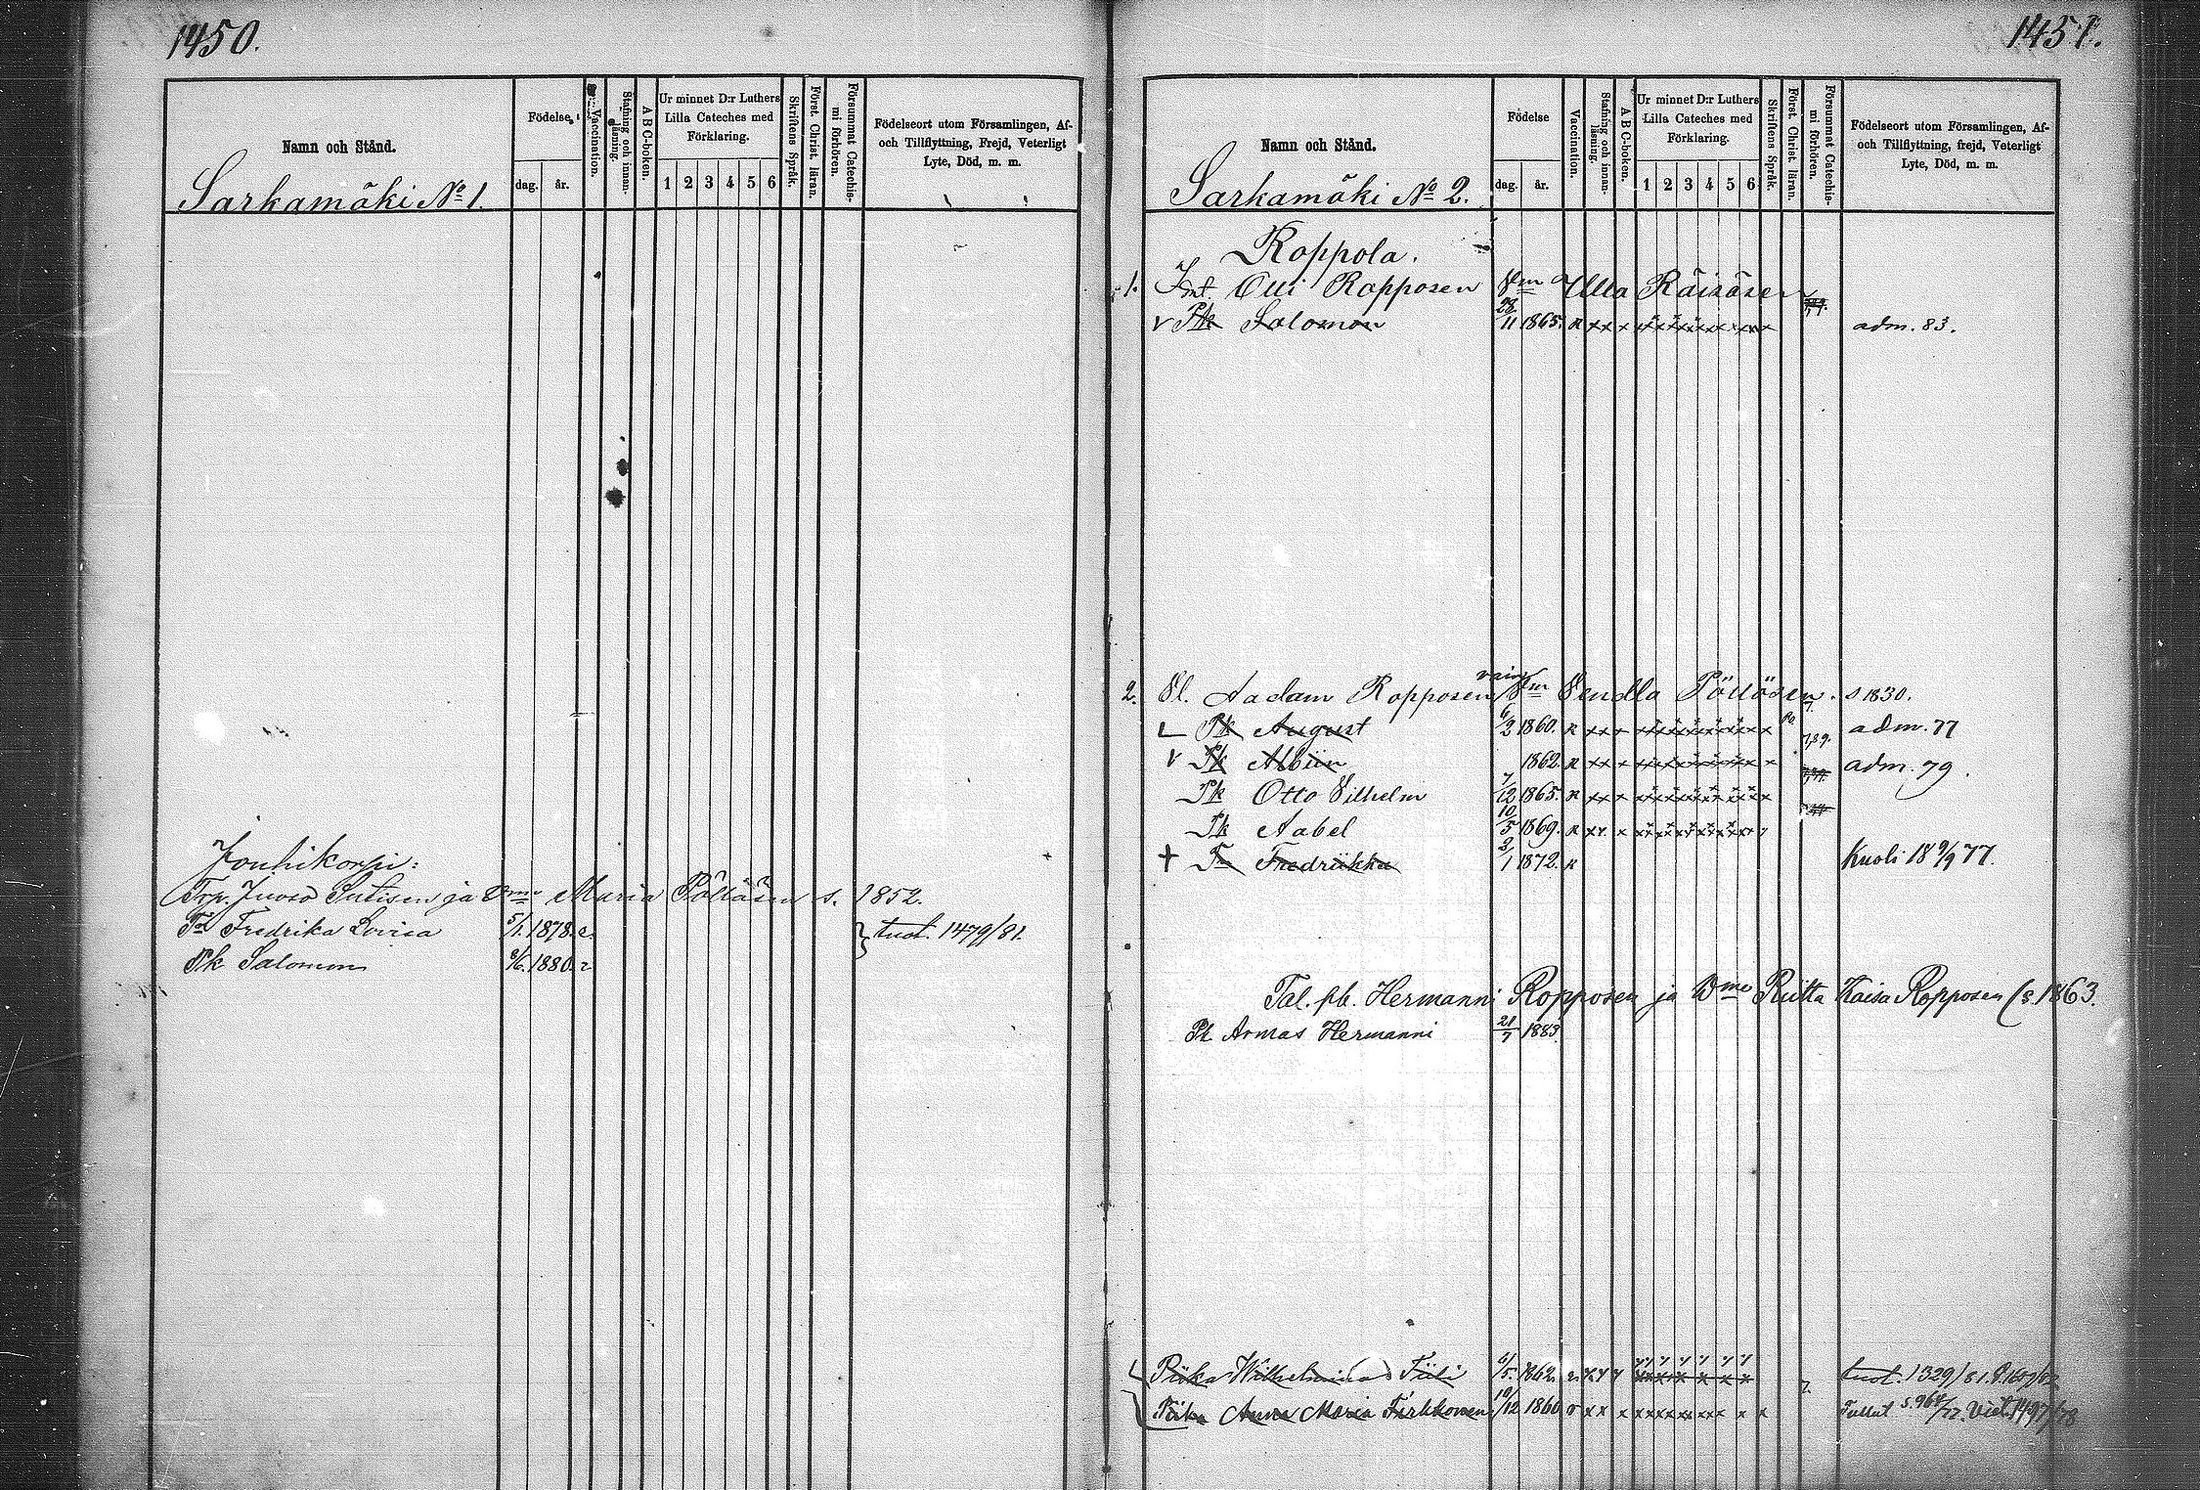 1450.
Namn och Stånd.
Födelse.
dag. år.
Vaccination.
Stafning och innan-läsning.
A B C-boken.
Ur minnet D:r Luthers Lilla Cateches med Förklaring.
1 2 3 4 5 6
Skriftens Språk.
Först. Christ. läran.
Försummat Catechis-mi förhören.
Födelseort utom Församlingen, Af- och Tillflyttning, Frejd, Veterligt Lyte, Död, m. m.
Sarkamäki No 1.
Jouhikorpi:
Trp. Juoso Sutisen ja Vmo Maria Pölläsen s. 1852.
Tr Fredrika Lovisa 5/1. 1878. tuot. 1479/81.
Pk Salomon 1880.
1451.
Namn och Stånd.
Födelse
dag. år.
Vaccination.
Stafning och innan-läsning.
A B C-boken.
Ur minnet D:r Luthers Lilla Cateches med Förklaring.
1 2 3 4 5 6
Skriftens Språk.
Först. Christ. läran.
Försummat Catechis-mi förhören.
Födelseort utom Församlingen, Af- och Tillflyttning, frejd, Veterligt Lyte, Död, m. m.
Sarkamäki No 2.
Roppola.
1. Int. Olli Ropposen Vmn Ulla Räisäsen
v Pk Salomon 28/11 1865. x xx x adm. 83.
2. Vl. Aadam Ropposen vaim Vmn Vendla Pöllösen. s 1830.
Pk August 6/2 1860. x xx x adm. 77
v Pk Albiin 1862. x xx x adm. 79.
Pk Otto Vilhelm 7/12 1865. x xx x
Pk Aabel 10/5 1869. x xx x
+ Tr Fredriikka 2/1 1872. x Kuoli 18 9/9 77.
Tal. pk. Hermanni Ropposen ja Vmo Riitta Kaisa Ropposen (s. 1863.
Pk Armas Hermanni 21/7 1883.
Piika Wilhelmina Tiili 6/5. 1862. tuot. 1329/81.
Piika Anna Maria Tirkkonen 10/12 1860 Tullut s. 964/77. Viet. 1497/78